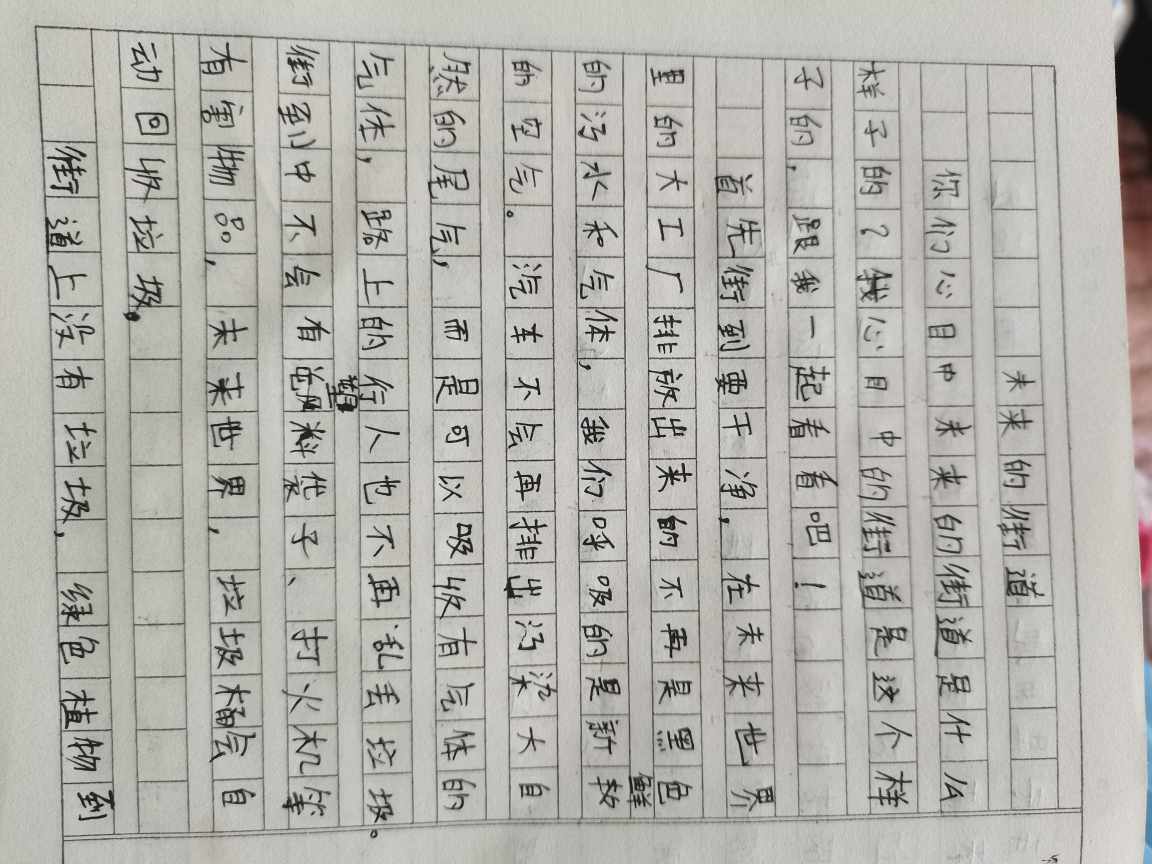 未来的街道
你们心目中未来的街道是什么
样子的？我心目中的街道是这个样
子的，跟我一起看看吧！
首先街到要干净，在未来世界
里的大工厂排放出来的不再是黑色
的污水和气体，我们呼吸的是新鲜
的空气。汽车不会再排出污染大自
然的尾气，而是可以吸收有气体的
气体，路上的行人也不再乱丢垃圾。
街到中不会有塑料袋子、打火机等
有害物品，未来世界，垃圾桶会自
动回收垃圾。
街道上没有垃圾，绿色植物到